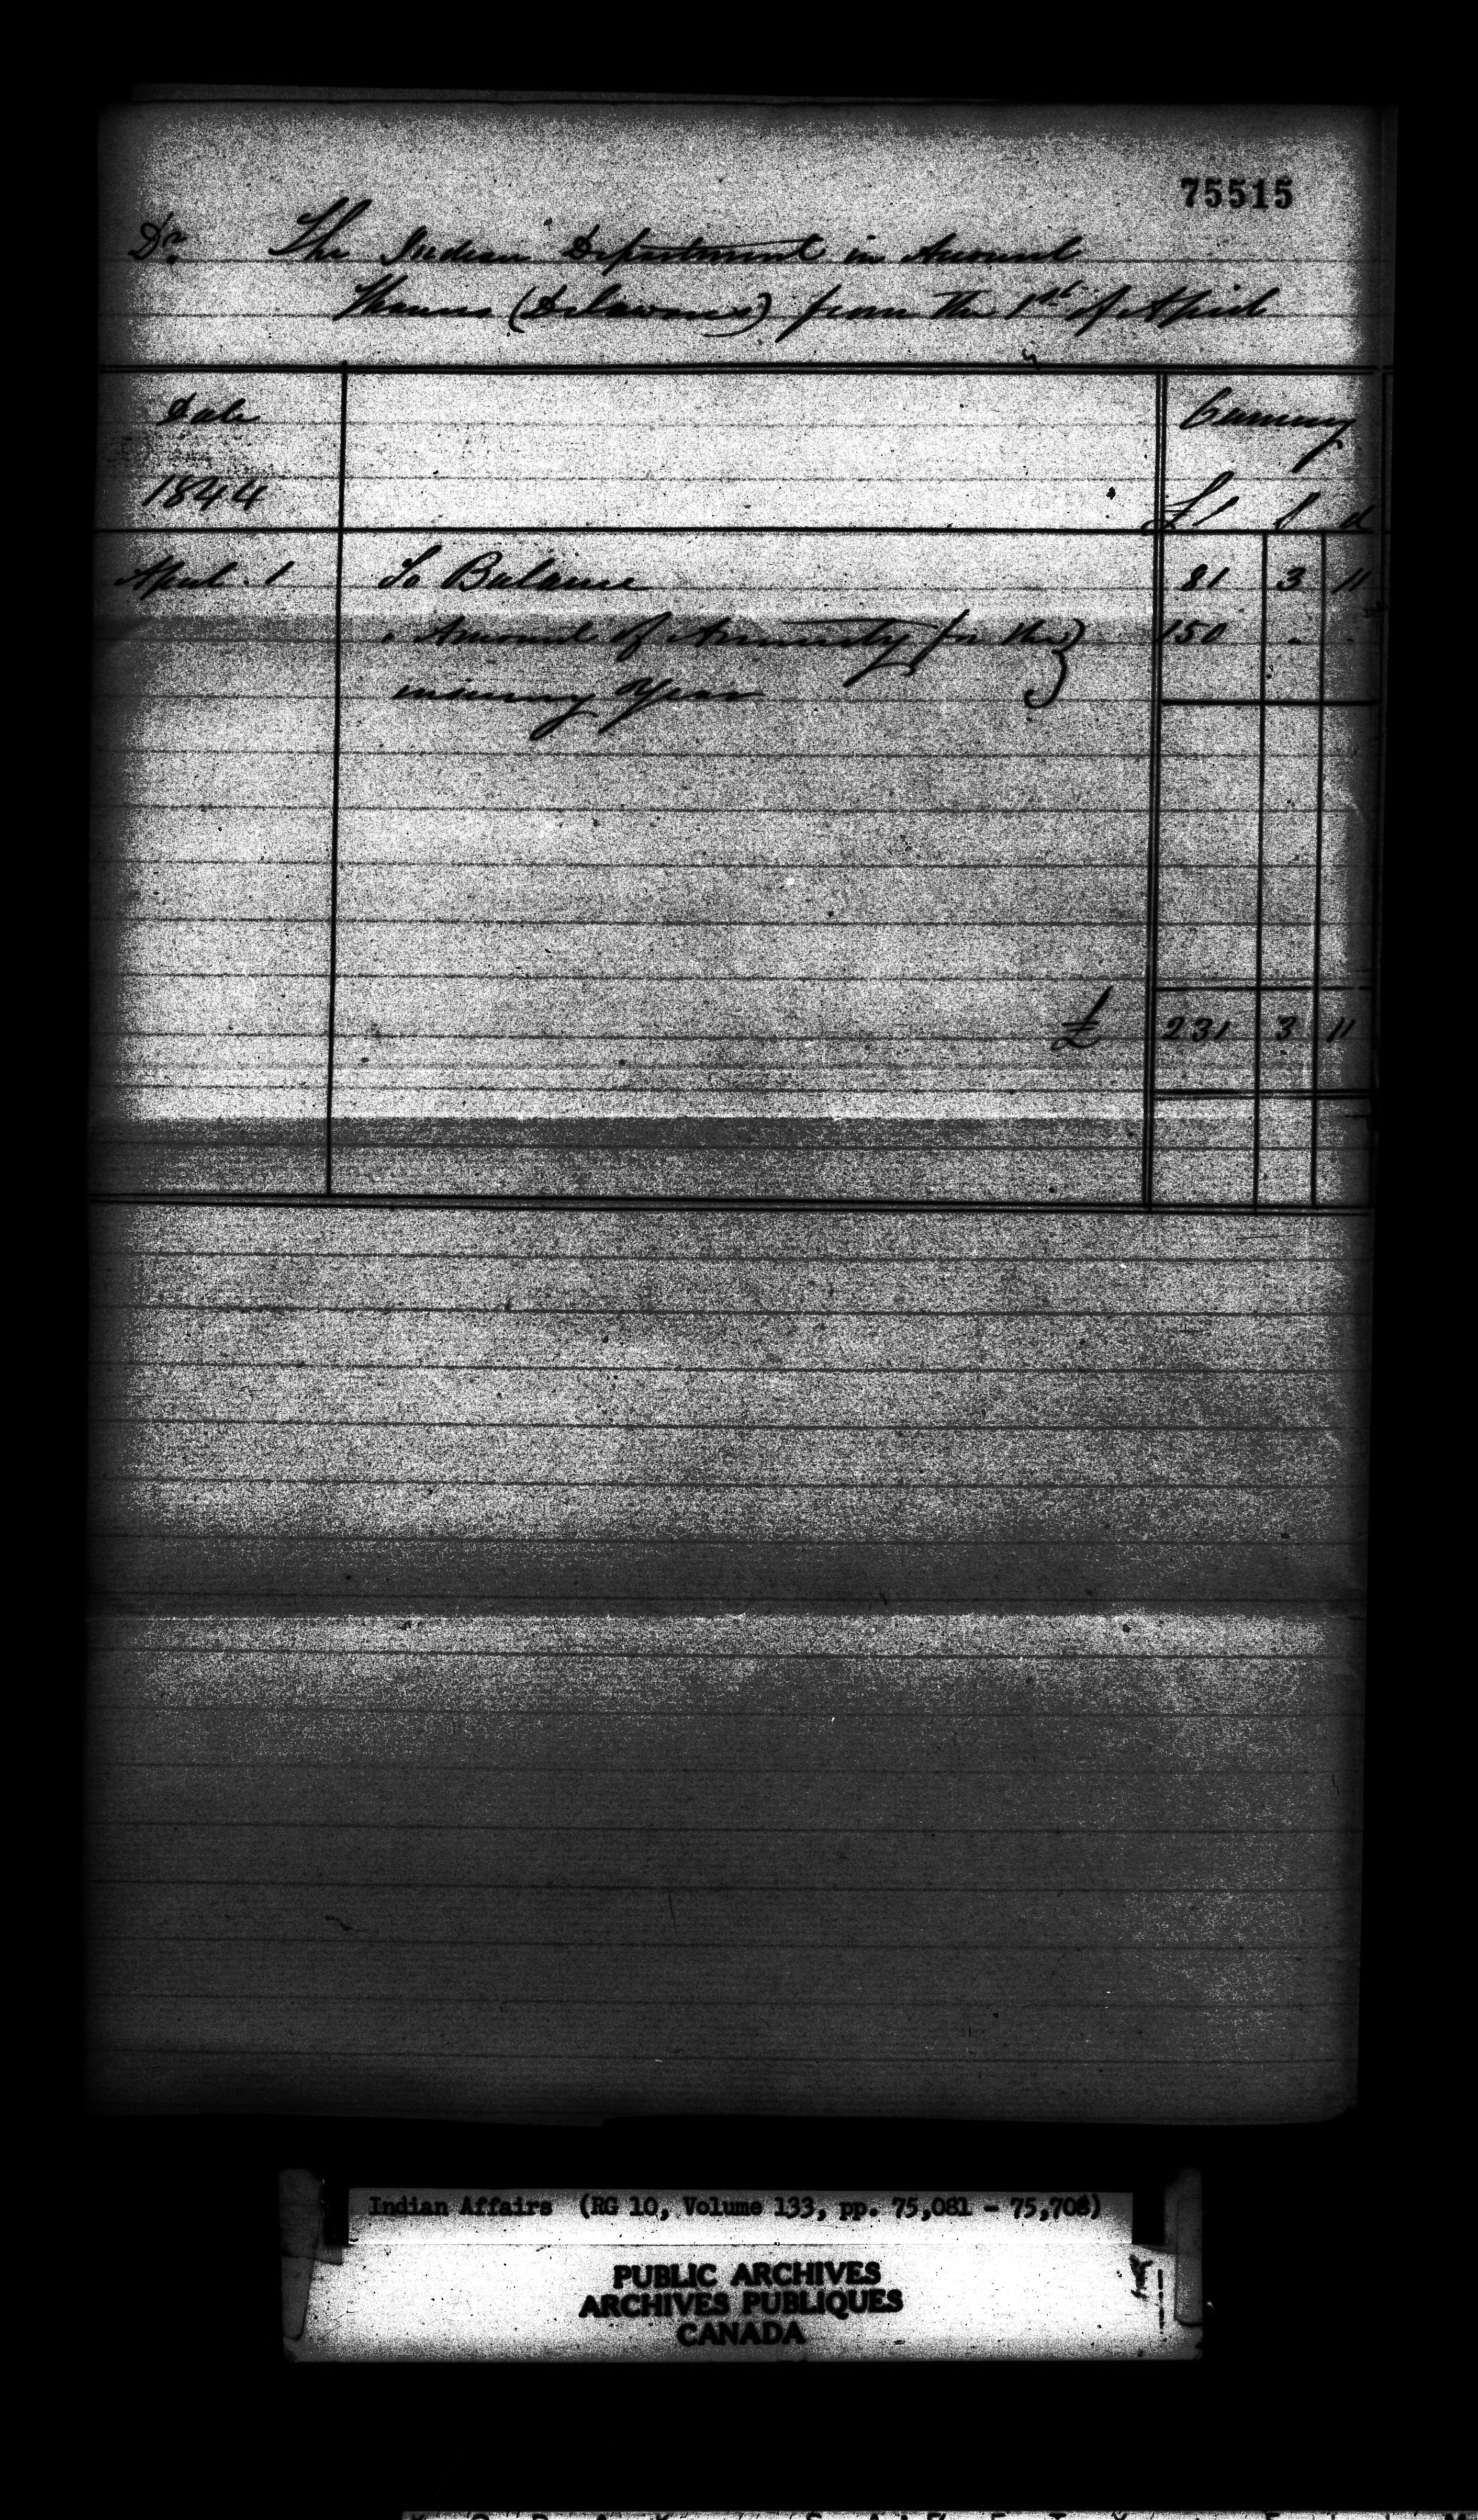 75515
Dr. The Indian Department in Account
Thames (Delawares) from the 1st of April
Date
Currency
1844
£ S d
April 1 To Balance 81 3 11
" Amount of Annuity for the } 150 - -
ensuing Year
£ 231 3 11
Indian Affairs (RG 10, Volume 133, pp. 75,081 - 75,708)
PUBLIC ARCHIVES
ARCHIVES PUBLIQUES
CANADA